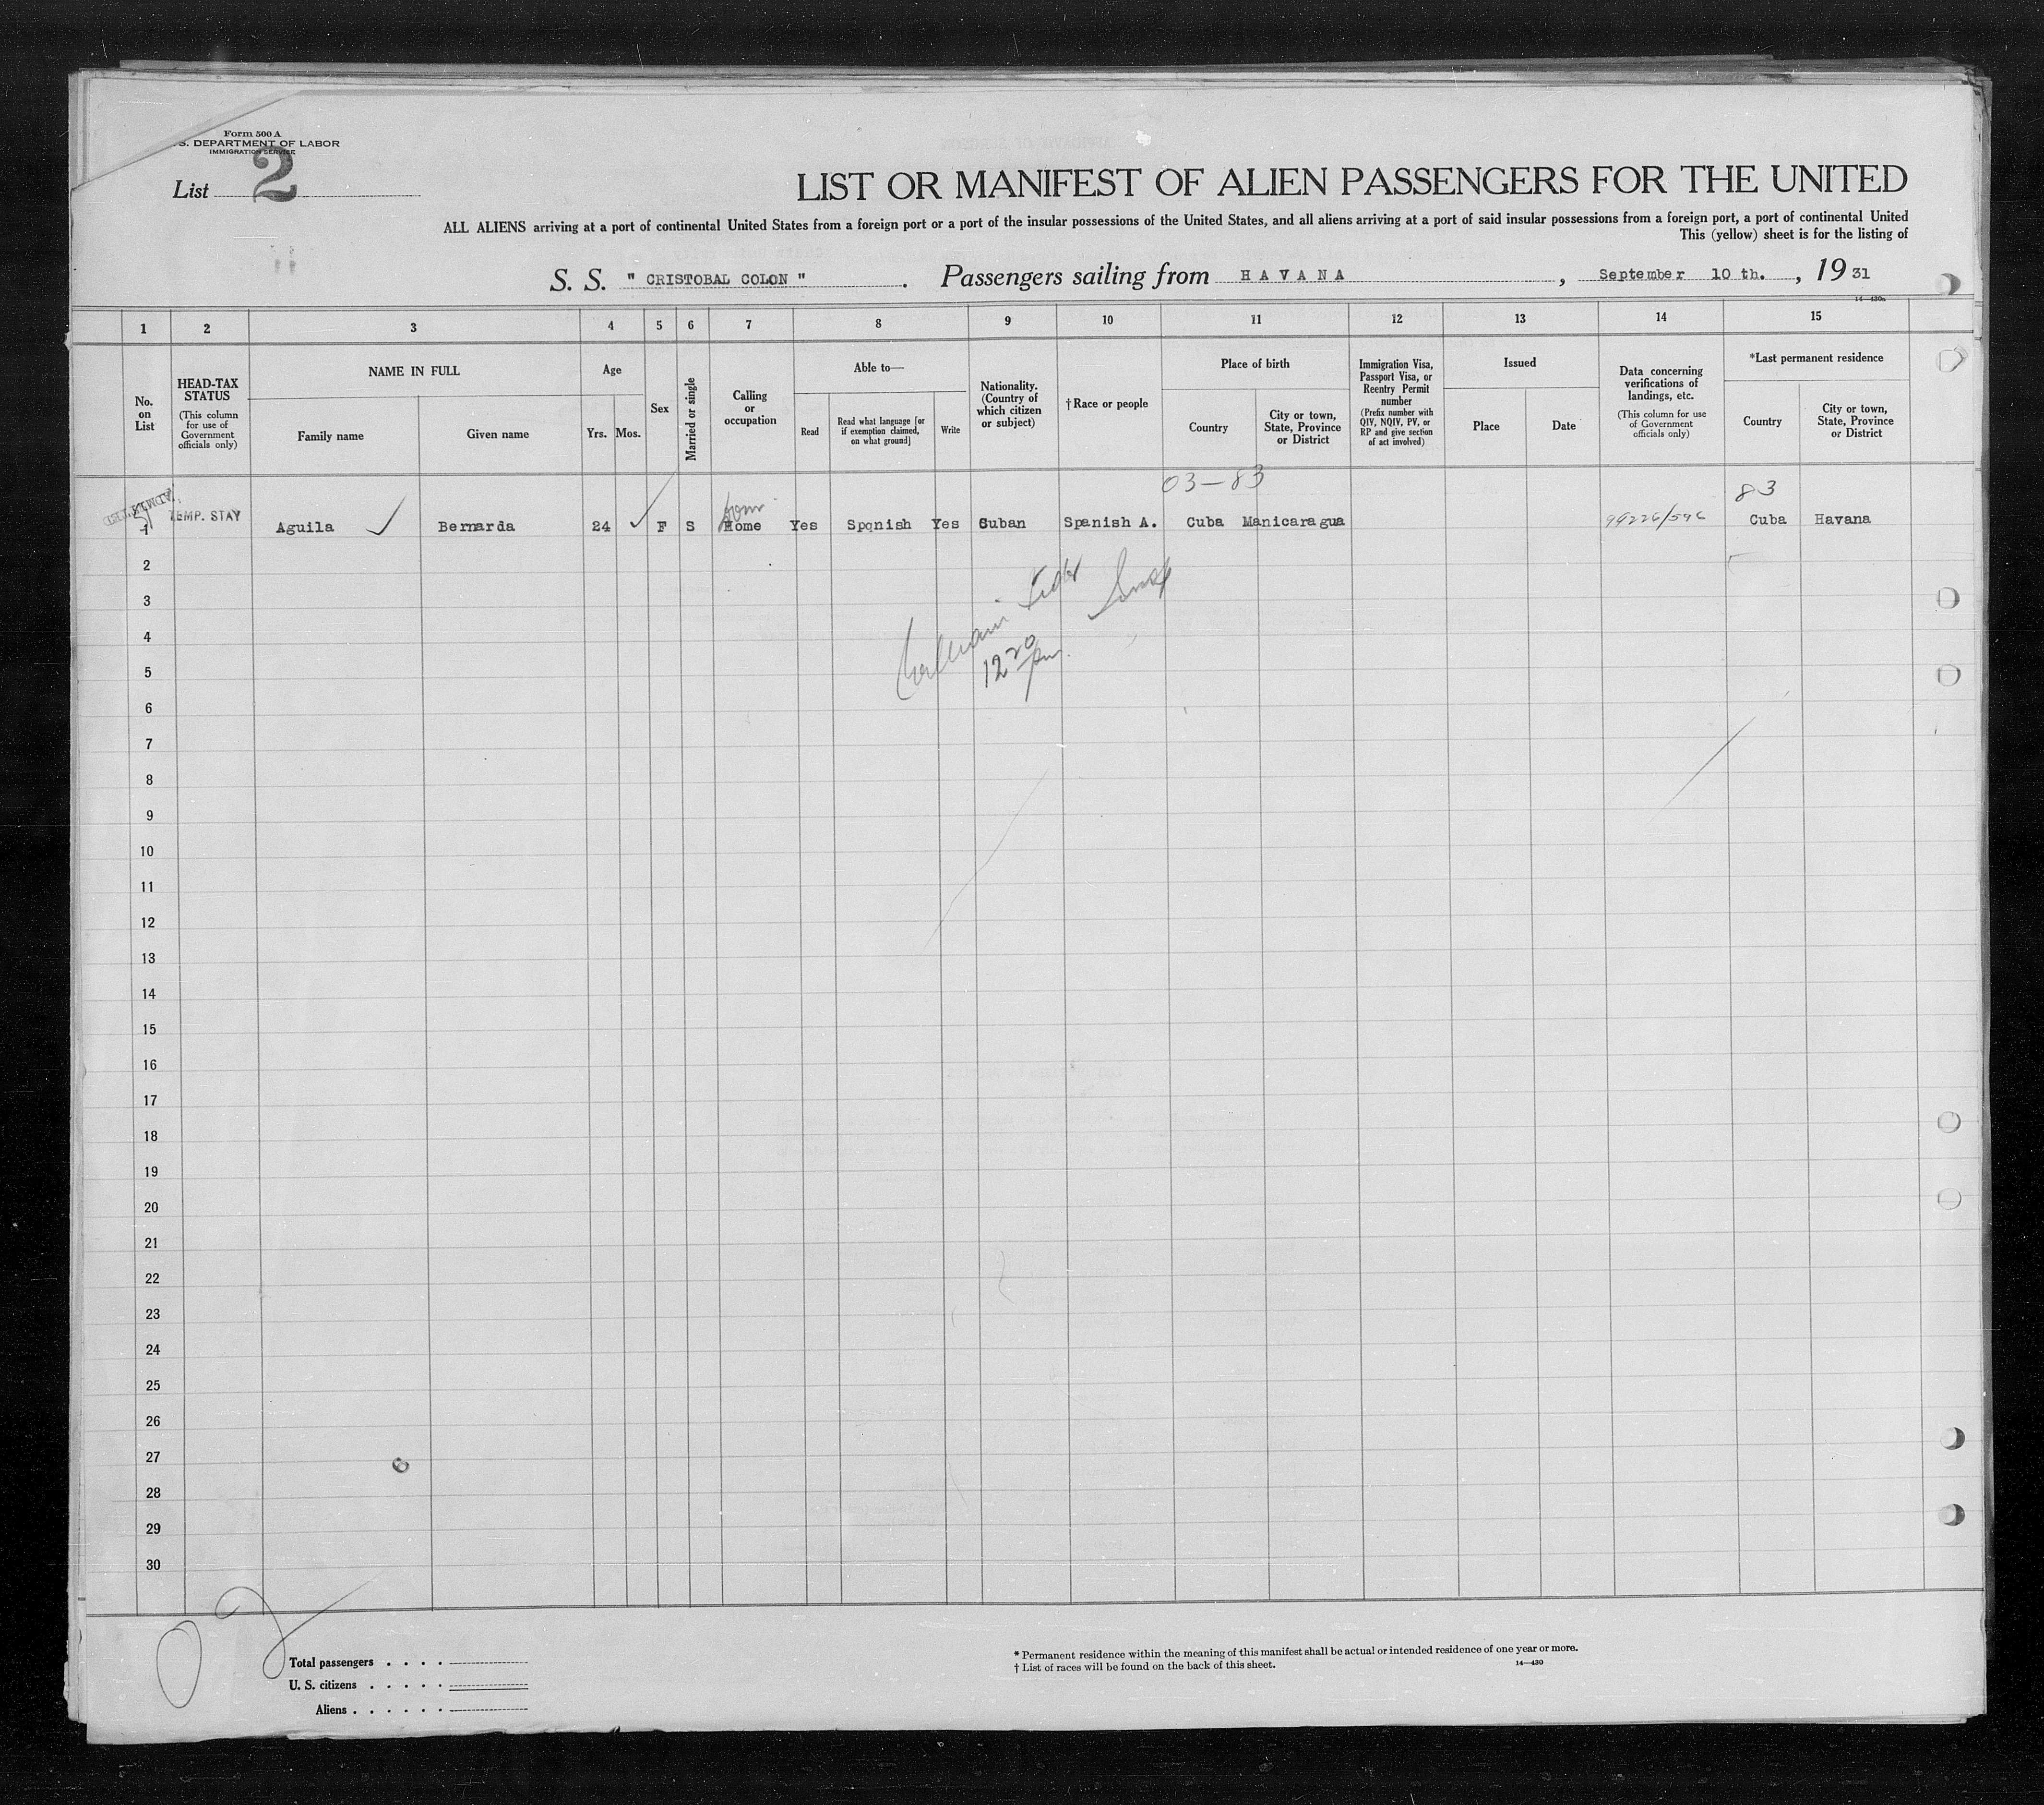 Form 500 A
U.S. DEPARTMENT OF LABOR
IMMIGRATION SERVICE
List 2
LIST OR MANIFEST OF ALIEN PASSENGERS FOR THE UNITED
ALL ALIENS arriving at a port of continental United States from a foreign port or a port of the insular possessions of the United States, and all aliens arriving at a port of said insular possessions from a foreign port, a port of continental United
This (yellow) sheet is for the listing of
S. S. " CRISTOBAL COLON " . Passengers sailing from H A V A N A , September 10 th. , 19 31
14—430a
1 2 3 4 5 6 7 8 9 10 11 12 13 14 15
No. on List
HEAD-TAX STATUS
(This column for use of Government officials only)
NAME IN FULL
Family name
Given name
Age
Yrs. Mos.
Sex
Married or single
Calling or occupation
Able to—
Read
Read what language [or if exemption claimed, on what ground]
Write
Nationality. (Country of which citizen or subject)
†Race or people
Place of birth
Country
City or town, State, Province or District
Immigration Visa, Passport Visa, or Reentry Permit number
(Prefix number with QIV, NQIV, PV, or RP and give section of act involved)
Issued
Place
Date
Data concerning verifications of landings, etc.
(This column for use of Government officials only)
*Last permanent residence
Country
City or town, State, Province or District
03-83
83
1 TEMP. STAY Aguila Bernarda 24 F S Home Yes Sponish Yes Cuban Spanish A. Cuba Manicaragua 99226/596 Cuba Havana
2
3
4
1220 pm
5
6
7
8
9
10
11
12
13
14
15
16
17
18
19
20
21
22
23
24
25
26
27
28
29
30
Total passengers . . . .
U. S. citizens . . . . .
Aliens . . . . . .
* Permanent residence within the meaning of this manifest shall be actual or intended residence of one year or more.
† List of races will be found on the back of this sheet.
14—430